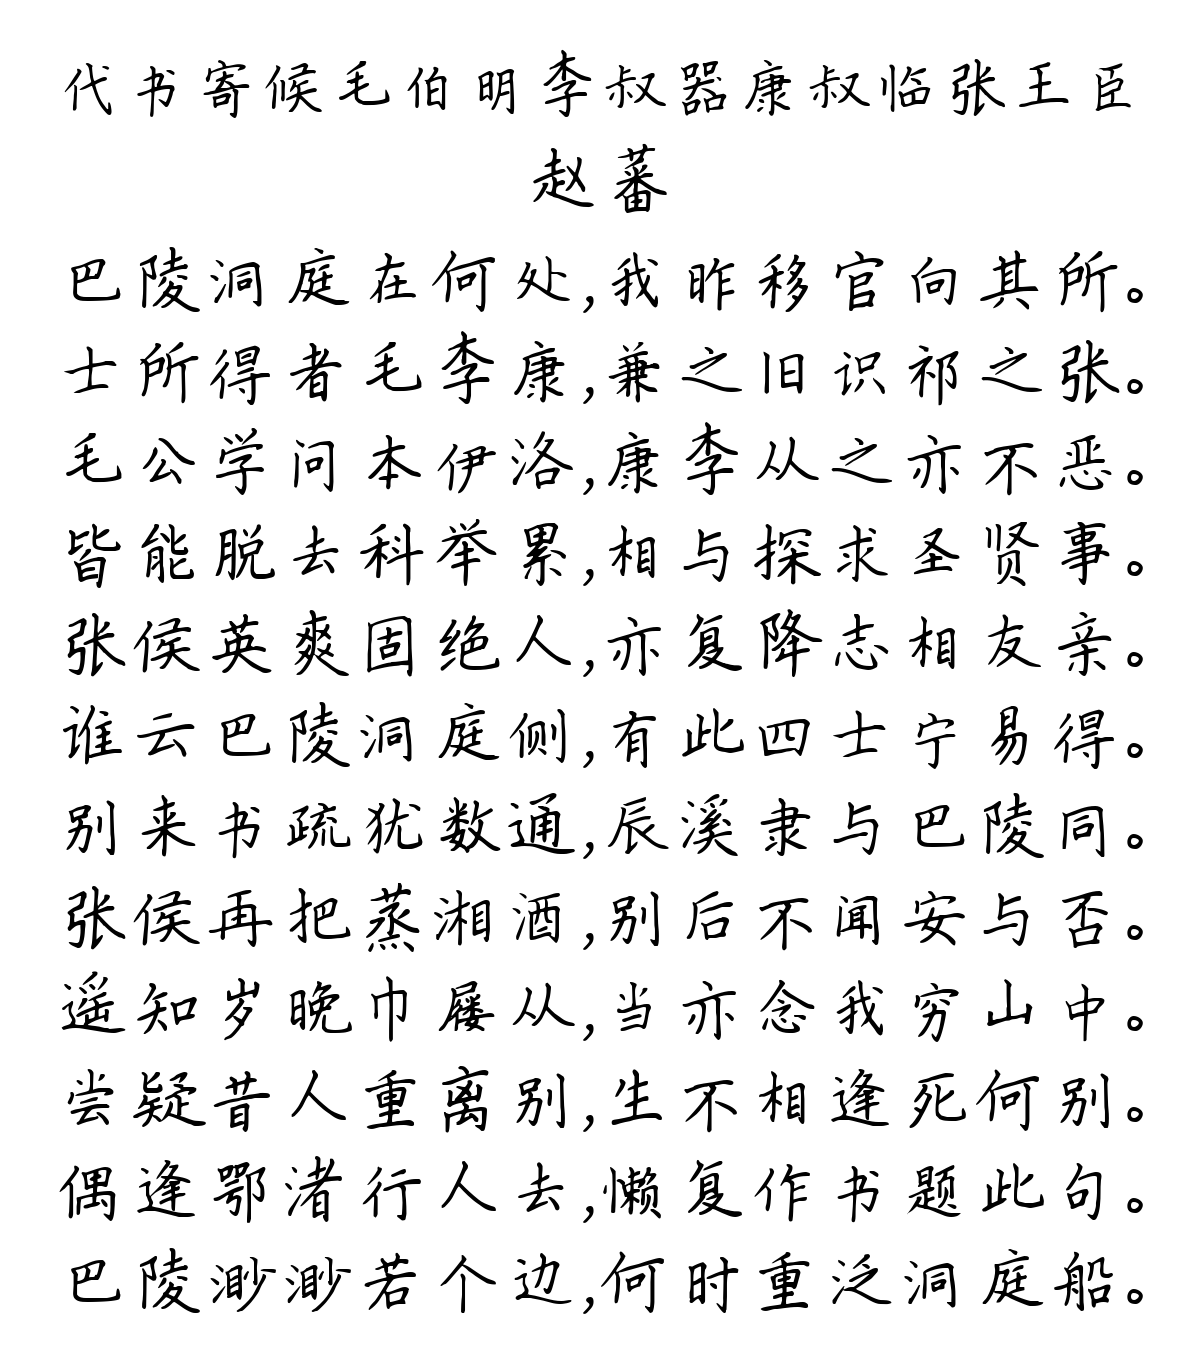 代书寄候毛伯明李叔器康叔临张王臣
赵蕃
巴陵洞庭在何处,我昨移官向其所。
士所得者毛李康,兼之旧识祁之张。
毛公学问本伊洛,康李从之亦不恶。
皆能脱去科举累,相与探求圣贤事。
张侯英爽固绝人,亦复降志相友亲。
谁云巴陵洞庭侧,有此四士宁易得。
别来书疏犹数通,辰溪隶与巴陵同。
张侯再把蒸湘酒,别后不闻安与否。
遥知岁晚巾屦从,当亦念我穷山中。
尝疑昔人重离别,生不相逢死何别。
偶逢鄂渚行人去,懒复作书题此句。
巴陵渺渺若个边,何时重泛洞庭船。